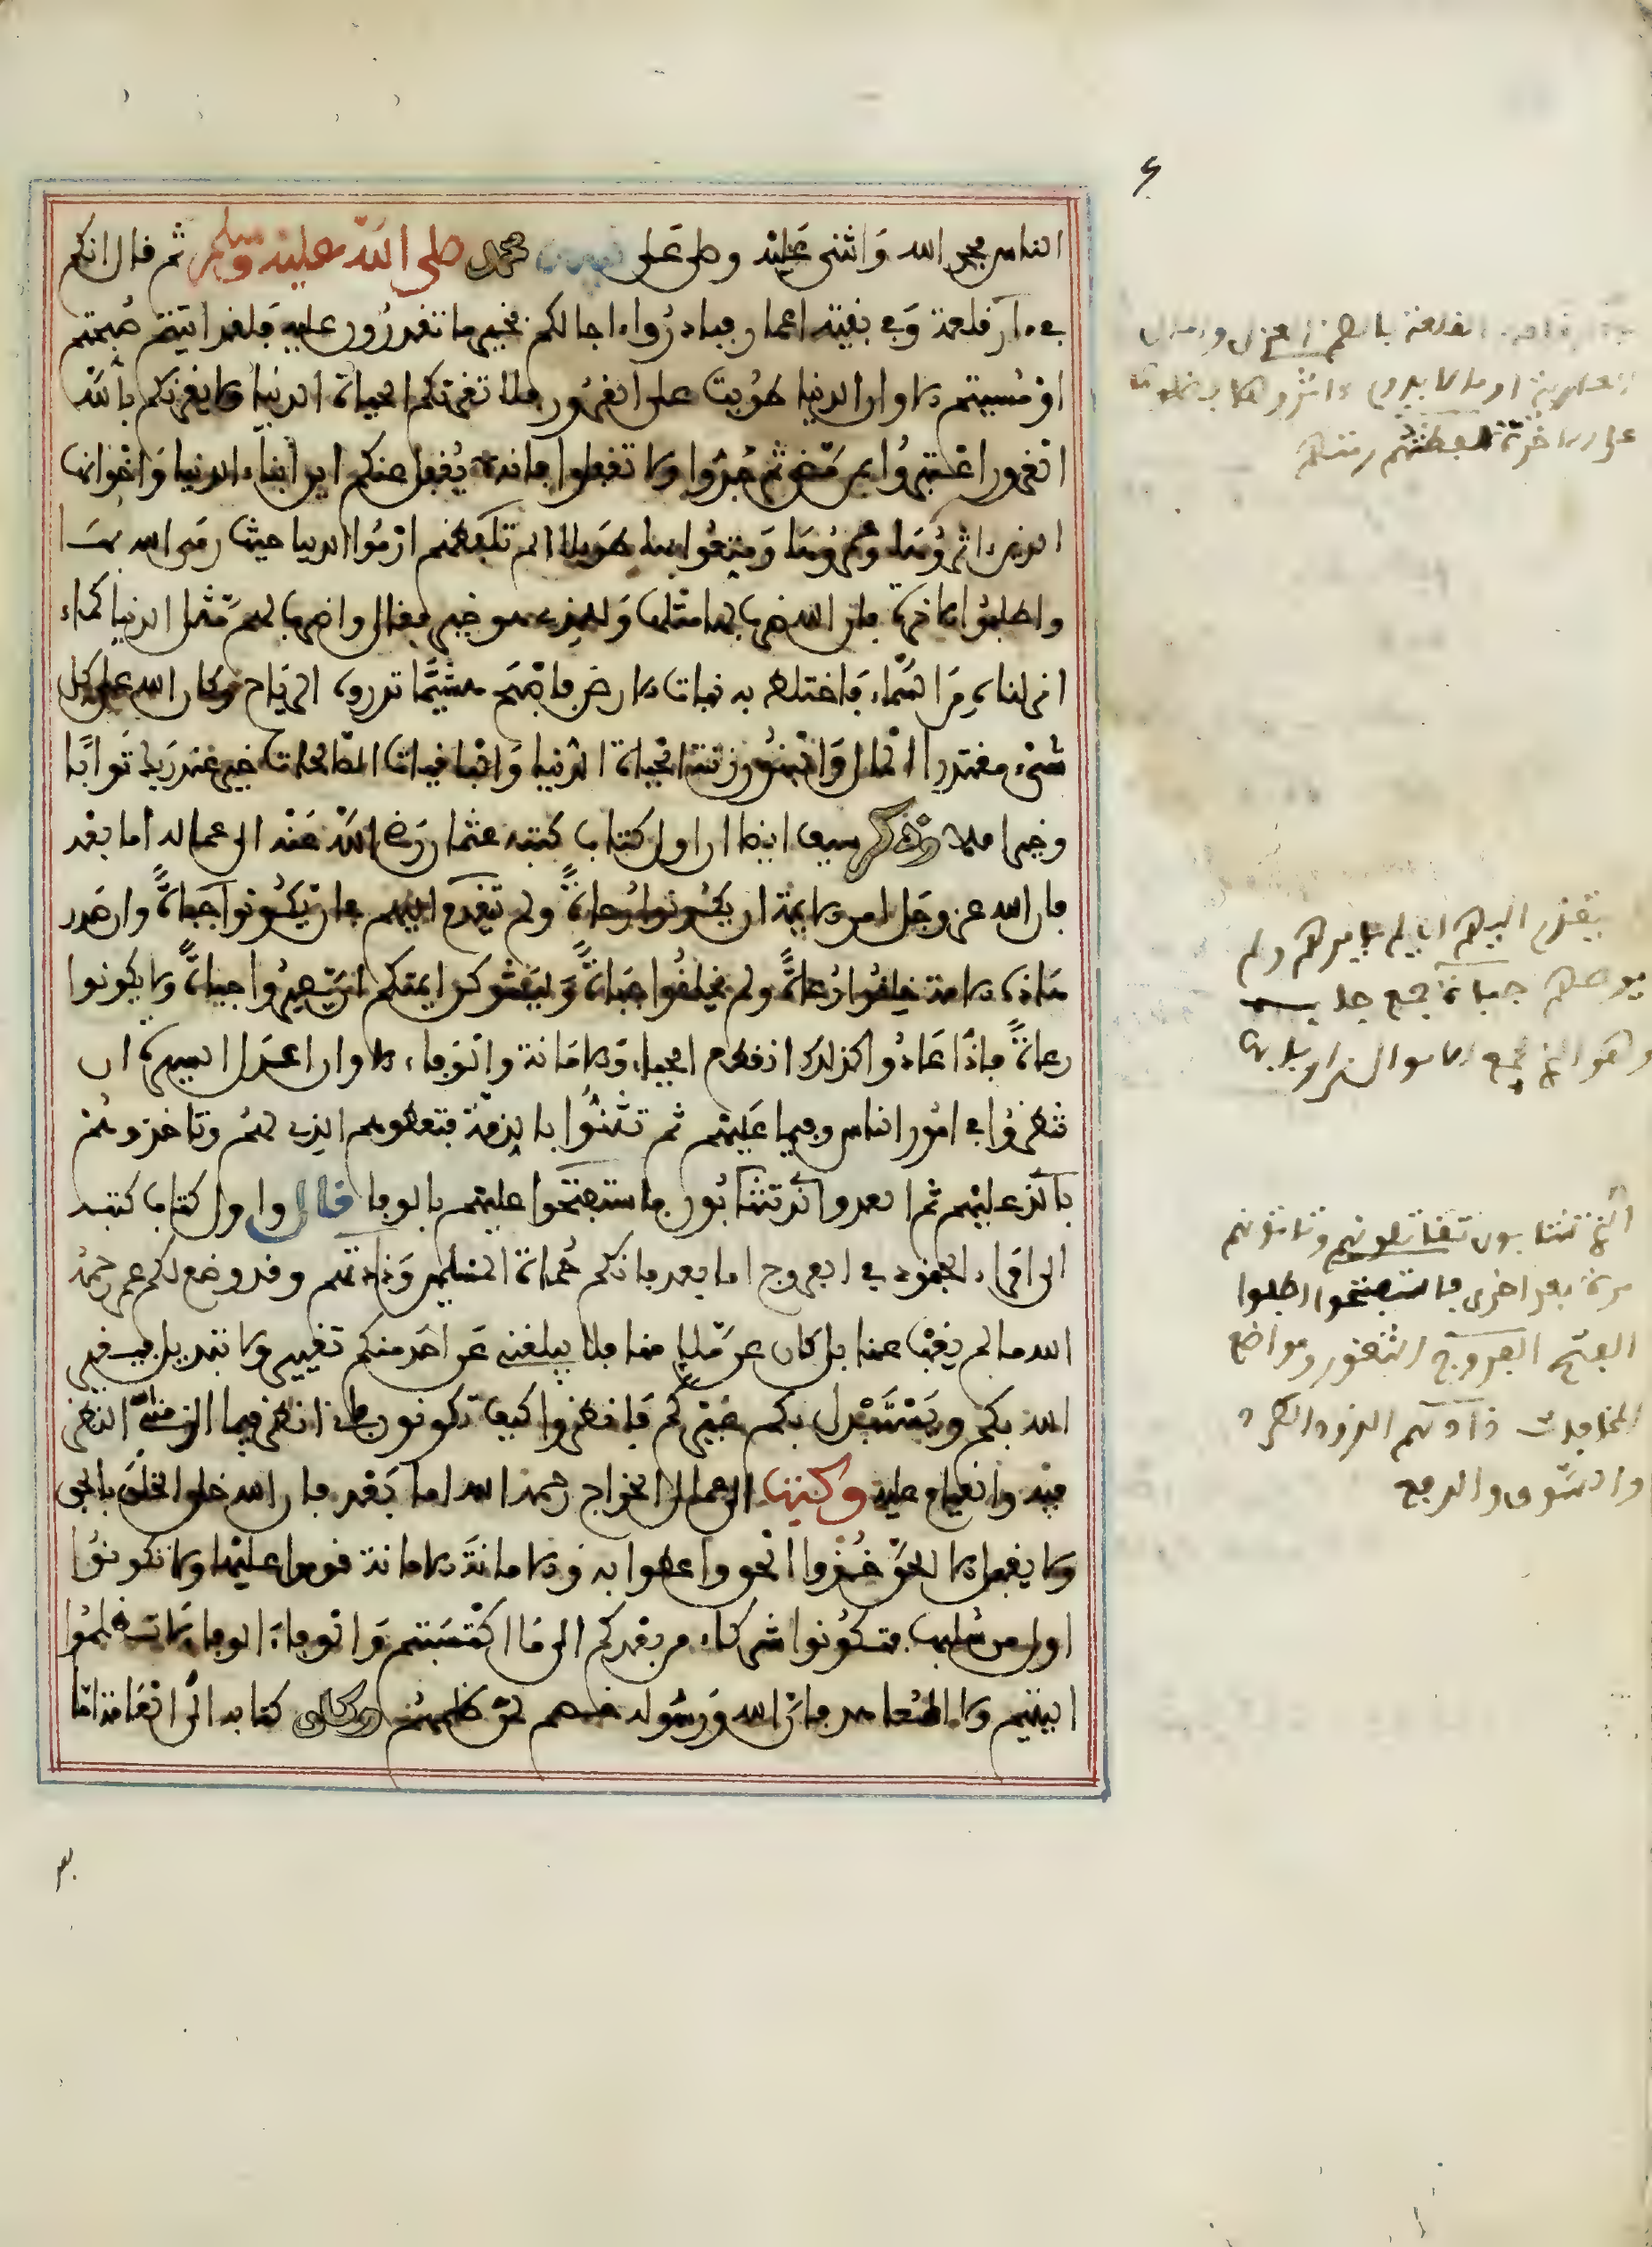 الناس فحمد الله وَاثنى عَليْه وصلى عَلى نبيه محمد صلى الله عليه وسلم ثم قال انكم
في دار قلعة وَفي بقية اعمار فبادرُوا ءاجالكم بخير ما تقدرُون عليه فلقد اتيتم صُبحتم
اوْ مُسيتم الا وان الدنيا طُويت على الغرُور فلا تغرنكم الحياة الدنيا ولا يغرنكم بالله
الغرور اعْتبرُوا بمن مَّضى ثم جِدّوا ولا تغفلوا فانه لا يُغفل عنكم اين أبناء الدنيا وَاخْوانها
الذين اثرُوها وعمرُوها وَمتعُوا بها طَويلا الم تلفظهم ارْمُوا الدنيا حيث رمى الله بهَا
واطلبُوا الاخرة فان الله ضرب لها مثلها وَللذي هو خير فقال واضرب لهم مَّثل الدنيا كماء
انزلناه مِنَ السَّماء فَاختلط به نبات الارض فاصْبَح هشيمًا تذروه الرياح وكان الله على كل
شيْء مقتدرا المال وَالبنُون زينة الحياة الدُّنيا وَالباقيات الصّالحات خير عند ربك ثوابًا
وخير املا وذكر سيف ايضا ان اول كتاب كتبه عثمان رَضي الله عَنْه الى عماله اما بعْد
فان الله عز وجَل امر الايمة ان يكُونوا رُعاةً ولم يتقدم اليهم فان يكُونوا جباةً وان صَدر
هَاذه الامة خلقُوا رُعاةً ولم يخلقُوا جبَاةً وَليُوشكن ايمتكم ان يَّصيرُوا جباةً ولا يكونوا
رعاةً فاذَا عَادُوا كذلك انقطع الحياء وَالامانة والوَفاء الا وان اعْدَل السيرة ان
تنظرُوا في امُور الناس وفيما عَليْهم ثم تثنُّوا بالذِمّة فتعطوهم الذي لهُم وتاخذوهُمْ
بالذي عليْهم ثم العدو الَّذي تنتابُون فاستفتحوا عليْهم بالوفا قال واول كتاب كتبه
الى امَراء الجنود في الفروج اما بعد فانكم حُماة المسْلمين وَذادتهم وقد وضع لكم عمر رحمهُ
الله ما لم يغِبْ عنا بل كان عن مَّلإٍ منا فلا يبلغني عَن احَد منكم تغيير ولا تبديل فيغير
الله بكم ويَسْتَبْدل بكم غيْركم فَانظرُوا كيف تكونون فاني انظر فيما الزمني الله النظر
فيْه والقيام عليْه وكتبَ الى عمال الخراج رحمه الله اما بَعْد فان الله خلق الخلق بالحق
ولا يقبل الا الحق خُذوا الحق واعطوا به وَالامانةَ الامانة قوموا عليْها ولا تكونوُا
اول من سُلبها فتكُونوا شركاء من بعْدكم الى مَا اكْتسَبتم وَالوفاءَ الوفاء لا تظلمُوا
اليتيم ولا المُعاهد فانّ الله وَرسُوله خصم لمن ظلمهُم وكان كتابه الى العَامة اما
بعد
يتقدم اليهم اي لم يامرهم ولم
يوصهم جباة جمع جاب
وهو الذي يجمع الاموال
الذي تنتابون تقاتلونهم وتاتونهم
مرة بعد اخرى فاستفتحوا اطلبوا
الفتح الفروج الثغور ومواضع
المخافات ذادتهم الذود الطرد
والسَّوق والدفع